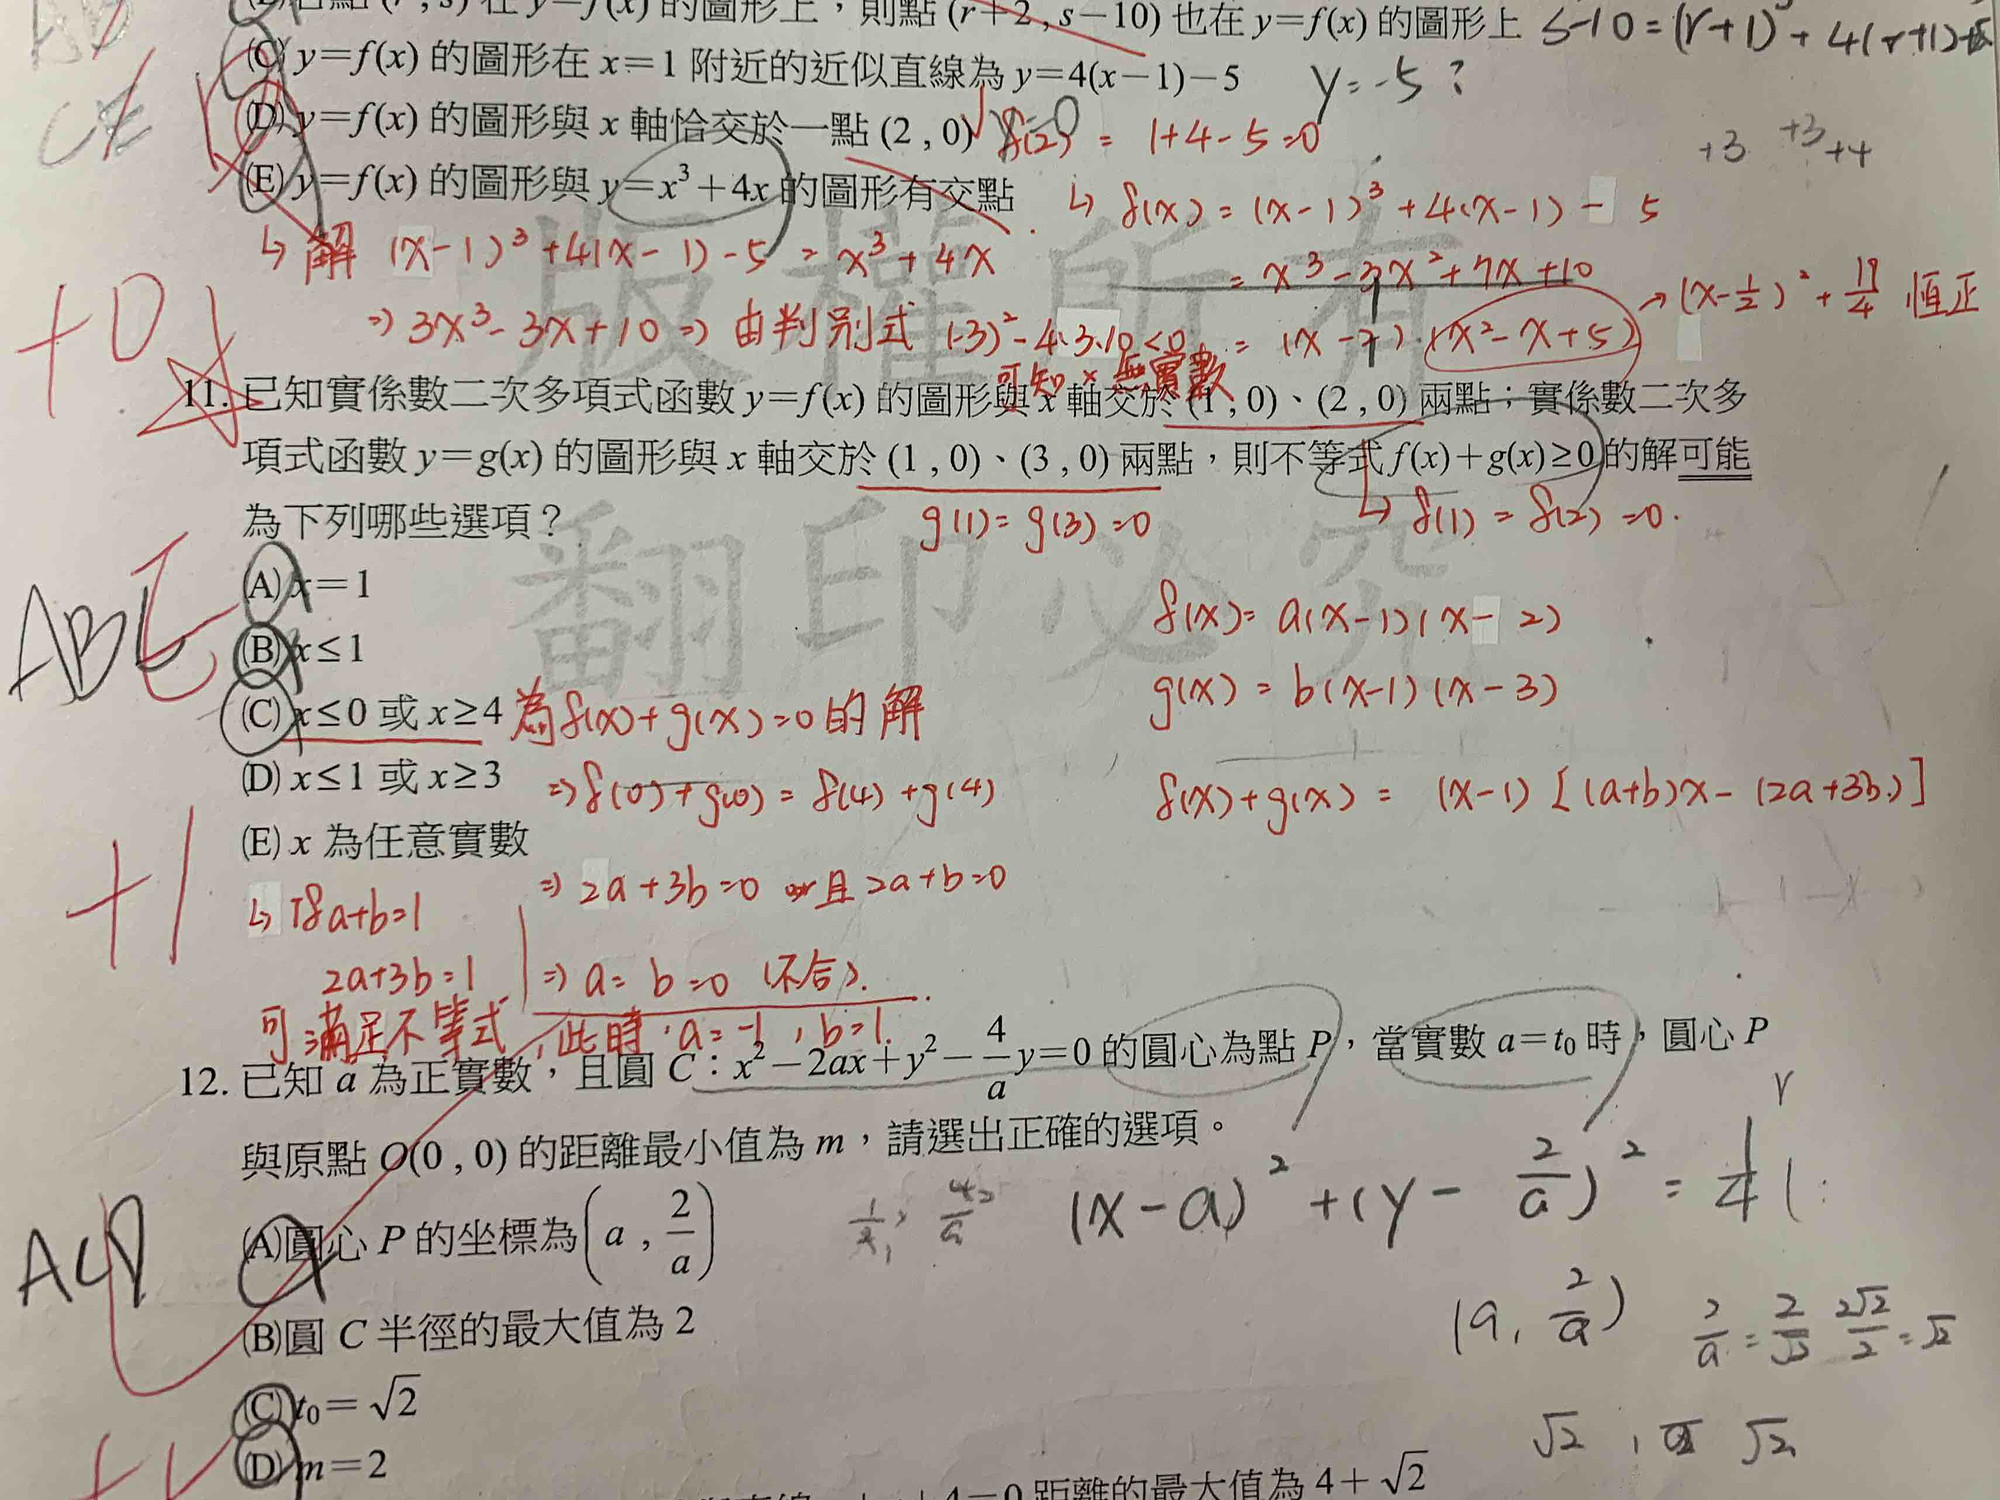 (r+2 , s−10) 也在 y=f(x) 的圖形上 S-10=(r+1)³+4(r+1)
(C) y=f(x) 的圖形在 x=1 附近的近似直線為 y=4(x−1)−5 y=-5?
(D) y=f(x) 的圖形與 x 軸恰交於一點 (2 , 0) f(2) = 1+4-5=0
+3 +3 +4
(E) y=f(x) 的圖形與 y=x³+4x 的圖形有交點 ↳ f(x) = (x-1)³+4(x-1)-5
↳ 解 (x-1)³+4(x-1)-5 = x³+4x = x³-3x²+7x+10
⇒ 3x³-3x+10 ⇒ 由判別式 (-3)²-4·3·10<0 = (x-2)·(x²-x+5) → (x-1/2)²+19/4 恆正
可知 x 無實數
+0
11. 已知實係數二次多項式函數 y=f(x) 的圖形與 x 軸交於 (1 , 0)、(2 , 0) 兩點；實係數二次多
項式函數 y=g(x) 的圖形與 x 軸交於 (1 , 0)、(3 , 0) 兩點，則不等式 f(x)+g(x)≥0 的解可能
為下列哪些選項？ g(1)=g(3)=0 ↳ f(1)=f(2)=0.
(A) x=1 f(x)= a(x-1)(x-2)
ABE
(B) x≤1 g(x) = b(x-1)(x-3)
(C) x≤0 或 x≥4 為 f(x)+g(x)=0 的解
(D) x≤1 或 x≥3 ⇒ f(0)+g(0) = f(4)+g(4) f(x)+g(x) = (x-1)[(a+b)x-(2a+3b)]
(E) x 為任意實數
+1
↳ 1f a+b=1 ⇒ 2a+3b=0 且 2a+b=0
2a+3b=1 ⇒ a= b=0 (不合).
可滿足不等式,此時,a=-1,b=1.
12. 已知 a 為正實數，且圓 C：x²−2ax+y²−4/a y=0 的圓心為點 P，當實數 a=t₀ 時，圓心 P
與原點 O(0 , 0) 的距離最小值為 m，請選出正確的選項。
(x-a)²+(y-2/a)² = 1/4 (
ACD
(A)圓心 P 的坐標為 (a , 2/a)
(a, 2/a) 2/a = 2/√2 2√2/2 = √2
(B)圓 C 半徑的最大值為 2
(C) t₀= √2
√2 , √2
(D) m=2
4=0 距離的最大值為 4+√2
版權所有
翻印必究